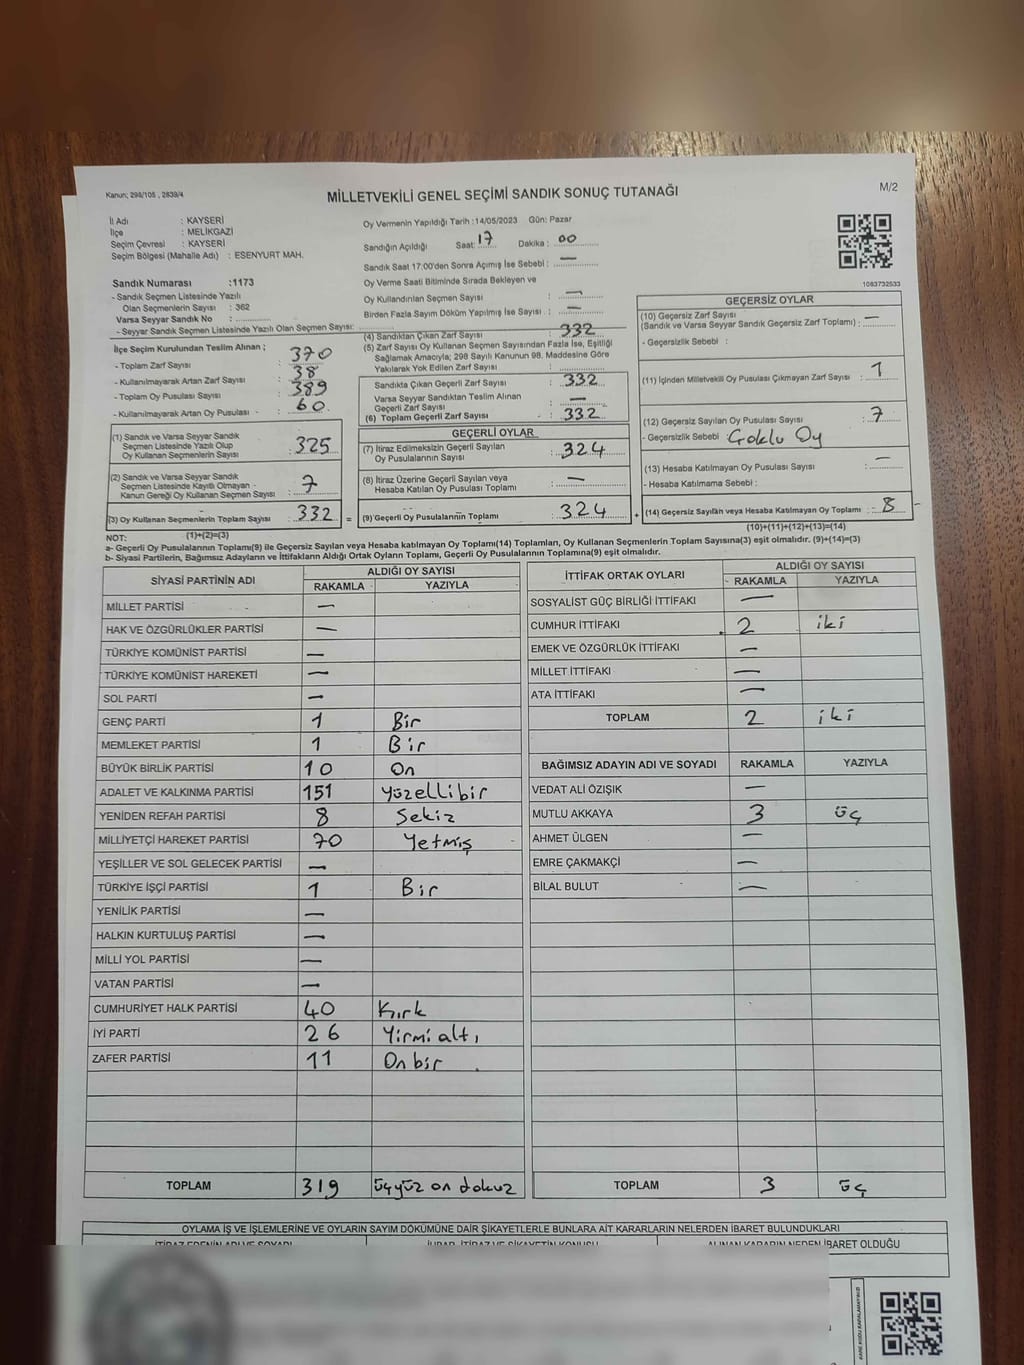 Kanun; 298/105 , 2839/4
MİLLETVEKİLİ GENEL SEÇİMİ SANDIK SONUÇ TUTANAĞI
M/2
İl Adı : KAYSERİ
İlçe : MELİKGAZİ
Seçim Çevresi : KAYSERİ
Seçim Bölgesi (Mahalle Adı) : ESENYURT MAH.
Oy Vermenin Yapıldığı Tarih :14/05/2023 Gün: Pazar
Sandığın Açıldığı Saat: 17 Dakika : 00
Sandık Saat 17:00'den Sonra Açımış İse Sebebi : —
Oy Verme Saati Bitiminde Sırada Bekleyen ve
Oy Kullandırılan Seçmen Sayısı : —
Birden Fazla Sayım Döküm Yapılmış İse Sayısı : —
1083732533
Sandık Numarası :1173
- Sandık Seçmen Listesinde Yazılı
Olan Seçmenlerin Sayısı : 362
Varsa Seyyar Sandık No :
- Seyyar Sandık Seçmen Listesinde Yazılı Olan Seçmen Sayısı:
İlçe Seçim Kurulundan Teslim Alınan ;
- Toplam Zarf Sayısı : 370
- Kullanılmayarak Artan Zarf Sayısı : 38
- Toplam Oy Pusulası Sayısı : 389
- Kullanılmayarak Artan Oy Pusulası - : 60
(1) Sandık ve Varsa Seyyar Sandık
Seçmen Listesinde Yazılı Olup
Oy Kullanan Seçmenlerin Sayısı : 325
(2) Sandık ve Varsa Seyyar Sandık
Seçmen Listesinde Kayıtlı Olmayan -
Kanun Gereği Oy Kullanan Seçmen Sayısı : 7
(3) Oy Kullanan Seçmenlerin Toplam Sayısı : 332 =
(1)+(2)=(3)
(4) Sandıktan Çıkan Zarf Sayısı : 332
(5) Zarf Sayısı Oy Kullanan Seçmen Sayısından Fazla İse, Eşitliği
Sağlamak Amacıyla; 298 Sayılı Kanunun 98. Maddesine Göre
Yakılarak Yok Edilen Zarf Sayısı :
Sandıkta Çıkan Geçerli Zarf Sayısı : 332
Varsa Seyyar Sandıktan Teslim Alınan
Geçerli Zarf Sayısı : —
(6) Toplam Geçerli Zarf Sayısı : 332
GEÇERLİ OYLAR
(7) İtiraz Edilmeksizin Geçerli Sayılan
Oy Pusulalarının Sayısı : 324
(8) İtiraz Üzerine Geçerli Sayılan veya
Hesaba Katılan Oy Pusulası Toplamı : —
(9) Geçerli Oy Pusulalarının Toplamı : 324 +
GEÇERSİZ OYLAR
(10) Geçersiz Zarf Sayısı
(Sandık ve Varsa Seyyar Sandık Geçersiz Zarf Toplamı) : —
- Geçersizlik Sebebi :
(11) İçinden Milletvekili Oy Pusulası Çıkmayan Zarf Sayısı : 1
(12) Geçersiz Sayılan Oy Pusulası Sayısı : 7
- Geçersizlik Sebebi : Çoklu Oy
(13) Hesaba Katılmayan Oy Pusulası Sayısı : —
- Hesaba Katılmama Sebebi :
(14) Geçersiz Sayılan veya Hesaba Katılmayan Oy Toplamı : 8
(10)+(11)+(12)+(13)=(14)
NOT:
a- Geçerli Oy Pusulalarının Toplamı(9) ile Geçersiz Sayılan veya Hesaba Katılmayan Oy Toplamı(14) Toplamları, Oy Kullanan Seçmenlerin Toplam Sayısına(3) eşit olmalıdır. (9)+(14)=(3)
b- Siyasi Partilerin, Bağımsız Adayların ve İttifakların Aldığı Ortak Oyların Toplamı, Geçerli Oy Pusulalarının Toplamına(9) eşit olmalıdır.
SİYASİ PARTİNİN ADI ALDIĞI OY SAYISI
RAKAMLA YAZIYLA
MİLLET PARTİSİ —
HAK VE ÖZGÜRLÜKLER PARTİSİ —
TÜRKİYE KOMÜNİST PARTİSİ —
TÜRKİYE KOMÜNİST HAREKETİ —
SOL PARTİ —
GENÇ PARTİ 1 Bir
MEMLEKET PARTİSİ 1 Bir
BÜYÜK BİRLİK PARTİSİ 10 On
ADALET VE KALKINMA PARTİSİ 151 Yüzellibir
YENİDEN REFAH PARTİSİ 8 Sekiz
MİLLİYETÇİ HAREKET PARTİSİ 70 Yetmiş
YEŞİLLER VE SOL GELECEK PARTİSİ —
TÜRKİYE İŞÇİ PARTİSİ 1 Bir
YENİLİK PARTİSİ —
HALKIN KURTULUŞ PARTİSİ —
MİLLİ YOL PARTİSİ —
VATAN PARTİSİ —
CUMHURİYET HALK PARTİSİ 40 Kırk
İYİ PARTİ 26 Yirmialtı
ZAFER PARTİSİ 11 Onbir
TOPLAM 319 üçyüz on dokuz
İTTİFAK ORTAK OYLARI ALDIĞI OY SAYISI
RAKAMLA YAZIYLA
SOSYALİST GÜÇ BİRLİĞİ İTTİFAKI —
CUMHUR İTTİFAKI 2 iki
EMEK VE ÖZGÜRLÜK İTTİFAKI —
MİLLET İTTİFAKI —
ATA İTTİFAKI —
TOPLAM 2 iki
BAĞIMSIZ ADAYIN ADI VE SOYADI RAKAMLA YAZIYLA
VEDAT ALİ ÖZIŞIK —
MUTLU AKKAYA 3 üç
AHMET ÜLGEN —
EMRE ÇAKMAKÇİ —
BİLAL BULUT —
TOPLAM 3 üç
OYLAMA İŞ VE İŞLEMLERİNE VE OYLARIN SAYIM DÖKÜMÜNE DAİR ŞİKAYETLERLE BUNLARA AİT KARARLARIN NELERDEN İBARET BULUNDUKLARI
İTİRAZ EDENİN ADI VE SOYADI İHBAR, İTİRAZ VE ŞİKAYETİN KONUSU ALINAN KARARIN NEDEN İBARET OLDUĞU